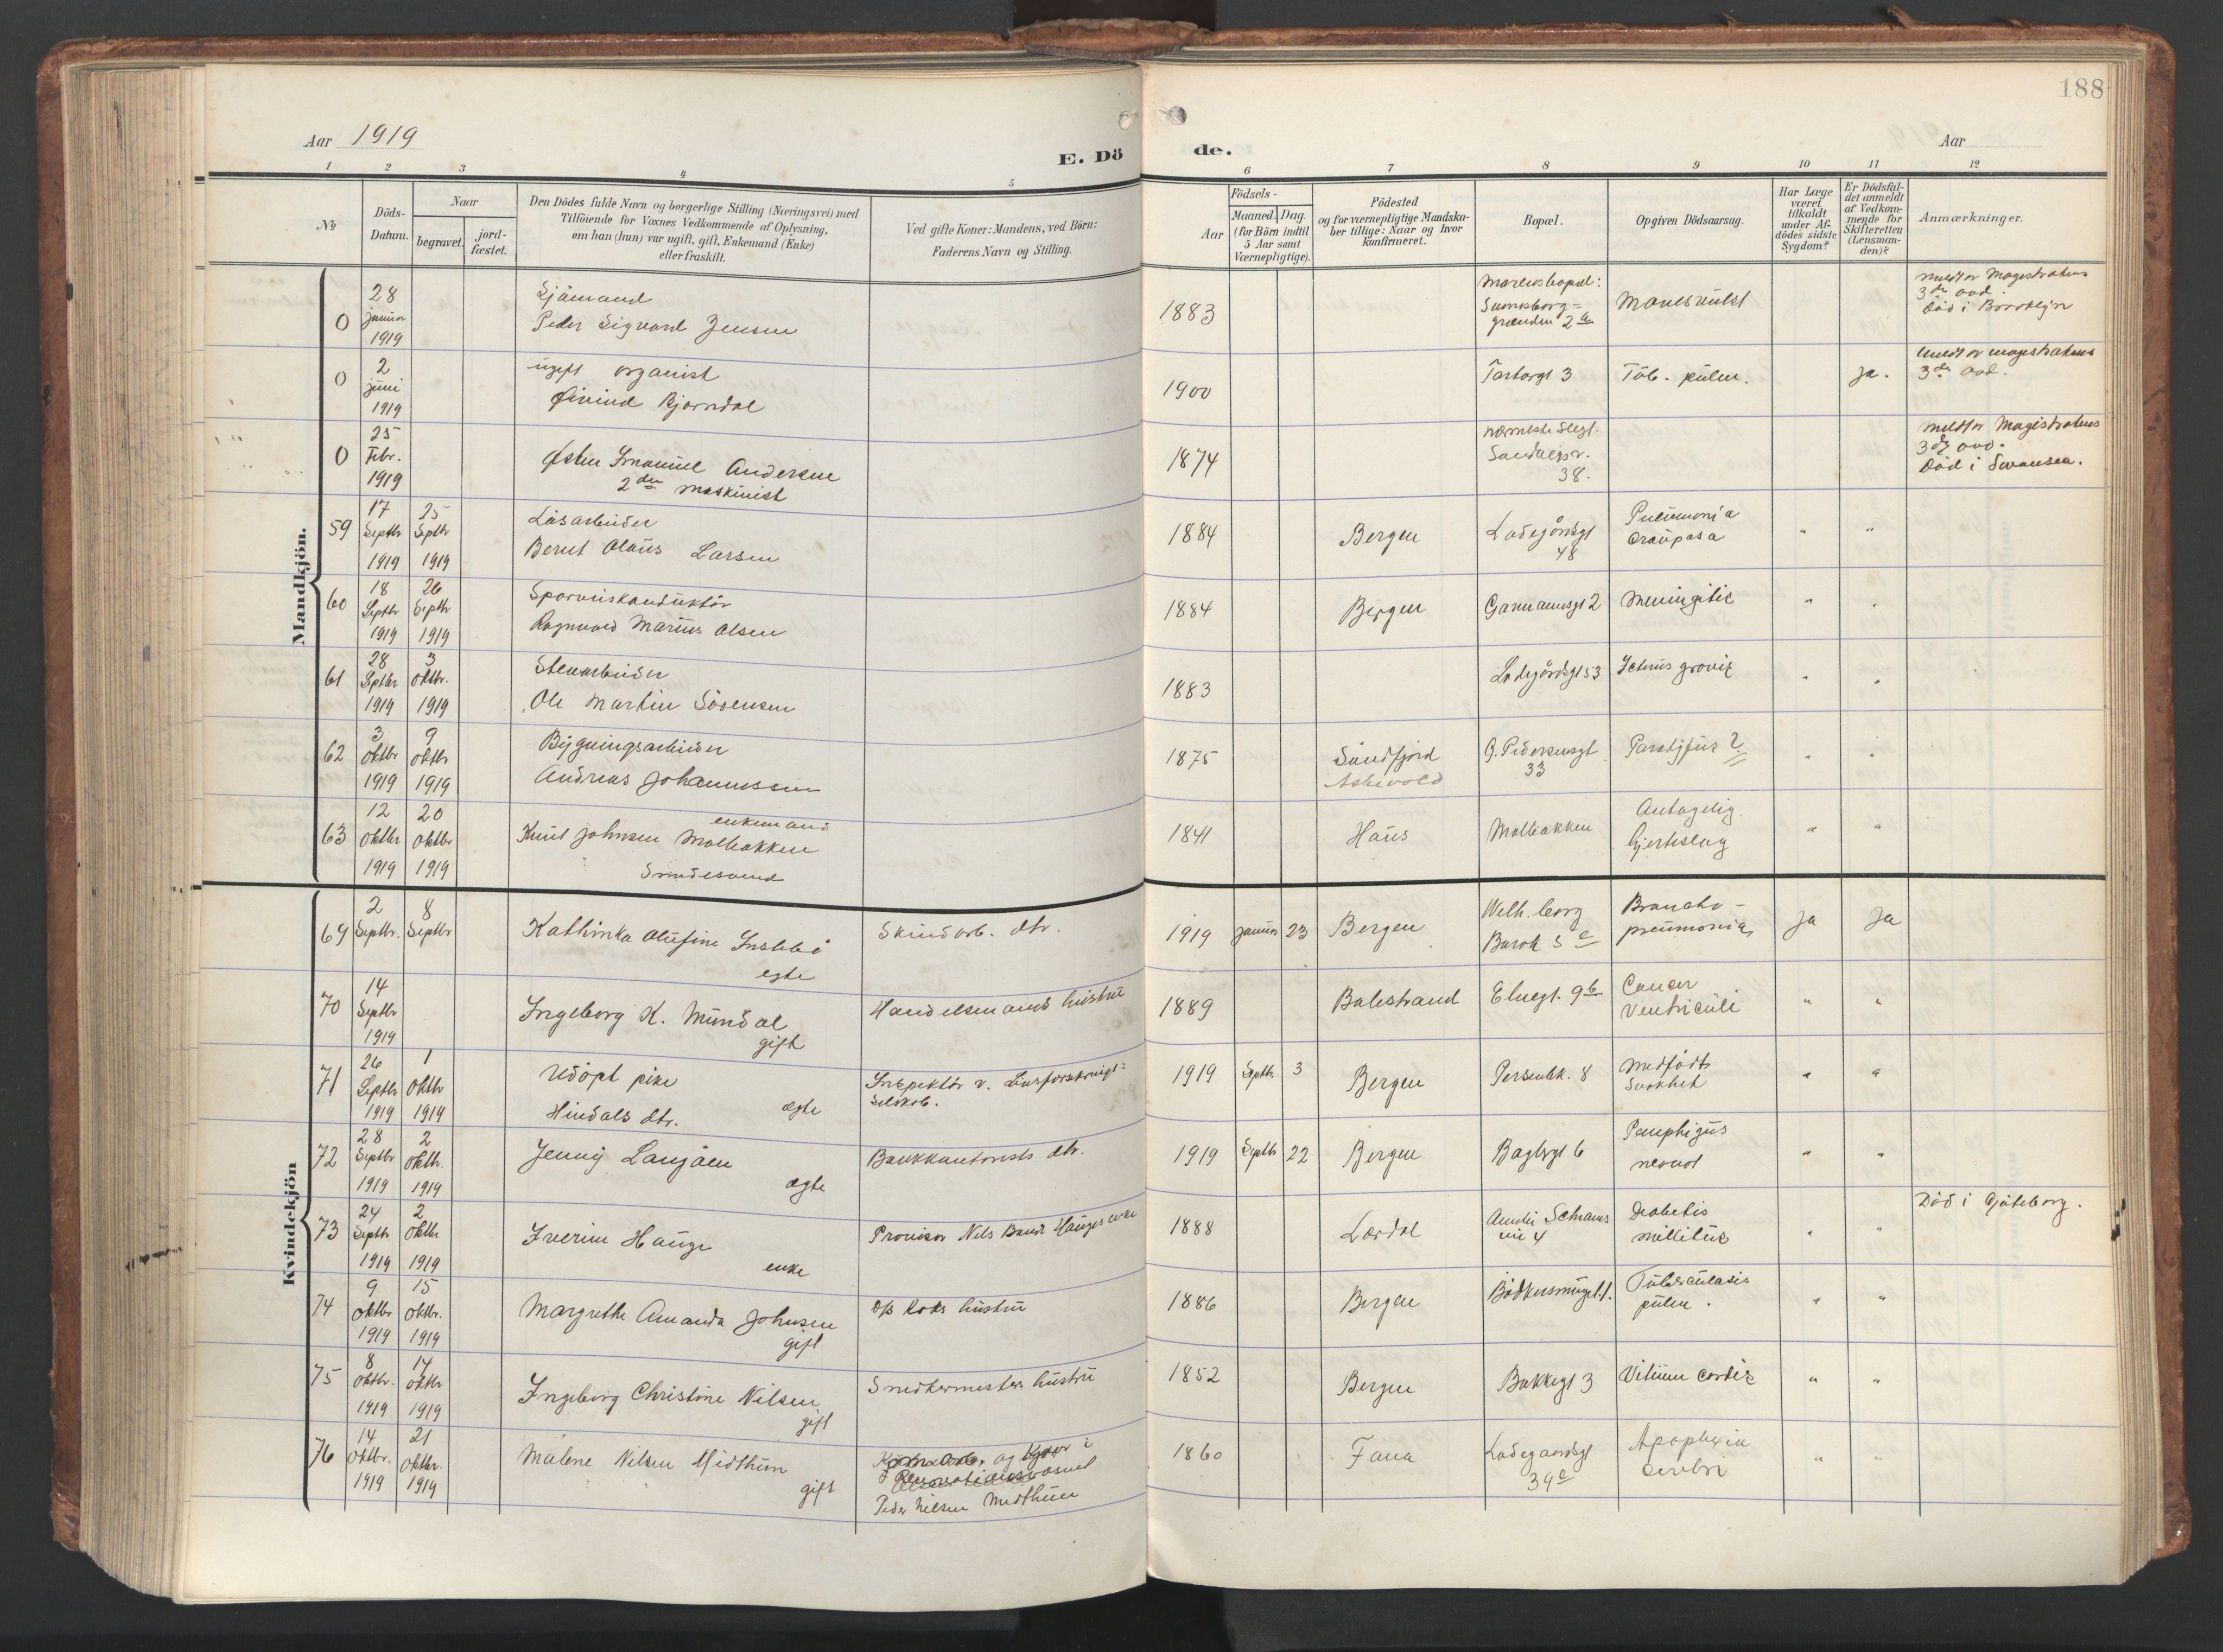 188
Aar 1919
E. Dö
de.
Aar
1 2 3 4 5 6 7 8 9 10 11 12
No
Döds-
Datum.
Naar
begravet.
jord-
fæstet.
Den Dödes fulde Navn og borgerlige Stilling (Næringsvei) med
Tilföiende for Voxnes Vedkommende af Oplysning,
om han (hun) var ugift, gift, Enkemand (Enke)
eller fraskilt.
Ved gifte Koner: Mandens, ved Börn:
Faderens Navn og Stilling.
Födsels-
Aar
Maaned. Dag.
(for Börn indtil
5 Aar samt
Værnepligtige).
Födested
og for værnepligtige Mandska-
ber tillige: Naar og hvor
konfirmeret.
Bopæl.
Opgiven Dödsaarsag.
Har Læge
været
tilkaldt
under Af-
dödes sidste
Sygdom?
Er Dödsfal-
det anmeldt
af Vedkom-
mende for
Skifteretten
(Lensman-
den)?
Anmærkninger.
Mandkjön.
0
28
Januar
1919
Sjömand
Peder Sigvard Jensen
1883
Morens bopæl:
grænden 2a
Død i Brooklyn
3die avd.
0
2
juni
1919
ugift organist
Øivind Bjørndal
1900
Torborgt 3
Tub. pulm.
ja.
meldt av magistratens
3die avd.
0
25
Febr.
1919
Østen Emanuel Andersen
2den maskinist
1874
nærmeste Slegt.
Sandvigsv.
38.
meldt av Magistratens
3die avd.
Død i Swansea.
59
17
Septbr
1919
25
Septbr
1919
Løsarbeider
Bernt Olaus Larsen
1884
Bergen
Ladegårdsgt
48
Pneumonia
croupasa
" "
60
18
Septbr
1919
26
Septbr
1919
Sporveiskonduktør
Ragnvald Marius Olsen
1884
Bergen
Gammemsgt 2
Meningitis
" "
61
28
Septbr
1919
3
oktbr.
1919
Stenarbeider
Ole Martin Sörensen
1883
Ladegårdsgt 53
Icterus gravis
" "
62
3
oktbr
1919
9
oktbr
1919
Bygningsarbeider
Andreas Johannessen
1875
Sundfjord
Askevold
G. Pedersensgt
33
Paratyfus ?
" "
63
12
oktbr
1919
20
oktbr
1919
enkemand
Knut Johnsen Mølbakken
Smedesvend
1841
Haus
Mølbakken
Antagelig
hjerteslag
" "
Kvindekjön
69
2
Septbr.
8
Septbr
Kathinka Olufine Instebø
egte
Skindarb. dtr.
1919 januar 23
Bergen
Welh. borg
Barak 5 c
Broncho-
pneumonia
ja ja
70
14
Septbr
1919
Ingeborg K. Mundal
gift
Handelsmands hustru
1889
Balestrand
Elvegt. 9b
Cancer
Ventriculi
" "
71
26
Septbr
1919
1
Oktbr
1919
Udöpt pike
Hindals dtr.
ægte
Inspektör v. Livsforsikrings-
selskab.
1919 Septbr. 3
Bergen
Persenbk. 8
Medfødt
Svakhet
" "
72
28
Septbr
1919
2
oktbr.
1919
Jenny Langåen
ægte
Bankkontorists dtr.
1919 Septbr 22
Bergen
Baglergt 6
Pemphigus
neonat
" "
73
24
Septbr
1919
2
oktbr
1919
Iverine Hauge
enke
Provisor Nils Hauges enke
1888
Lærdal
Amalie Schrams
vei 4
Diabetis
mellitus
" "
Död i Gøteborg.
74
9
oktbr
1919
15
oktbr.
1919
Margrethe Amanda Johnsen
gift
D/s koks hustru
1886
Bergen
Bödkersmuget 1.
Tuberculosis
pulm.
" "
75
8
oktbr.
1919
14
oktbr
1919
Ingeborg Christine Nilsen
gift
Snedkermesters hustru
1852
Bergen
Bakkegt 3
Vitium cordis
" "
76
14
oktbr.
1919
21
oktbr.
1919
Malene Nilsen Midthun
gift
Peder Nilsen Midthun
1860
Fana
Ladegaardsgt
39e
Apoplexia
cerebri
" "